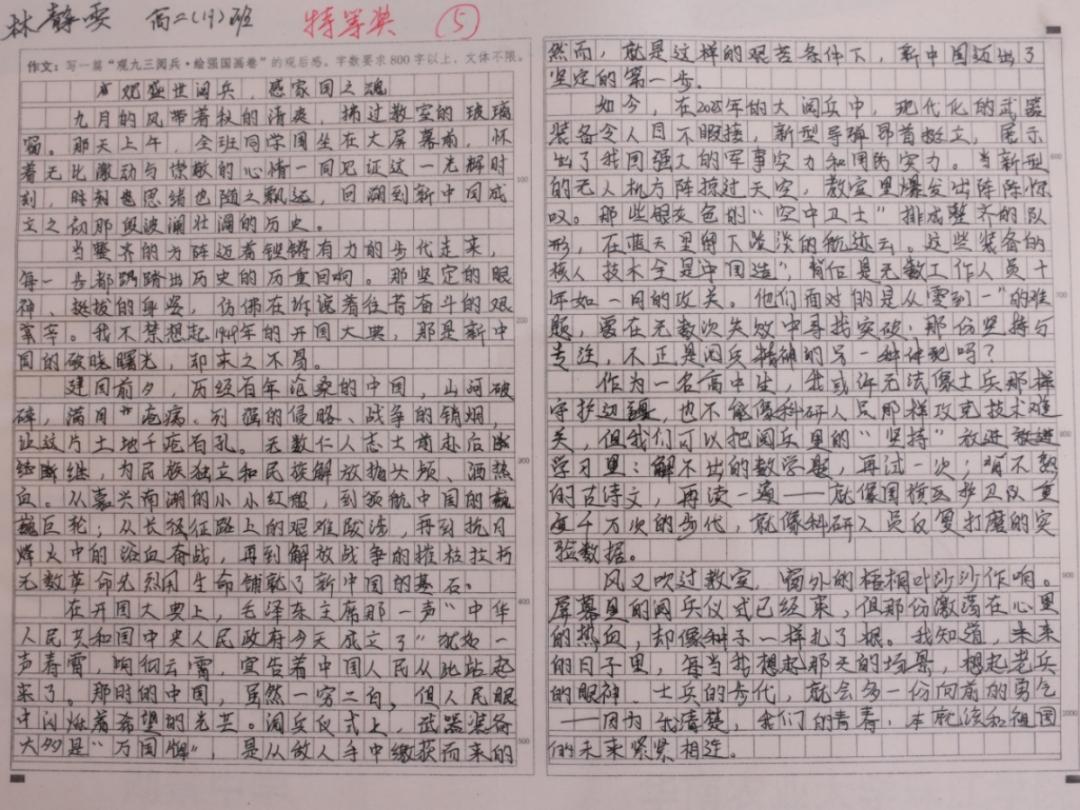 林静雯 高二(19)班 特等奖 ⑤
作文：写一篇“观九三阅兵·绘强国画卷”的观后感。字数要求800字以上，文体不限。
观盛世阅兵，感家国之魂
九月的风带着秋的清爽，拂过教室的玻璃
窗。那天上午，全班同学围坐在大屏幕前，怀
着无比激动与崇敬的心情一同见证这一光辉时
刻，时刻思绪也随之飘远，回溯到新中国成
立之初那段波澜壮阔的历史。
当整齐的方阵迈着铿锵有力的步伐走来，
每一步都踢踏出历史的厉重回响。那坚定的眼
神、挺拔的身姿，仿佛在诉说着往昔奋斗的艰
辛。我不禁想起1949年的开国大典，那是新中
国的破晓曙光，却来之不易。
建国前夕，历经百年沧桑的中国，山河破
碎，满目疮痍。列强的侵略、战争的销烟，
让这片土地千疮百孔。无数仁人志士前赴后
继，为民族独立和民族解放抛头颅、洒热
血。从嘉兴南湖的小小红船，到领航中国的巍
巍巨轮；从长征征路上的艰难跋涉，再到抗日
烽火中的浴血奋战，再到解放战争的摧枯拉朽
无数革命先烈用生命铺就了新中国的基石。
在开国大典上，毛泽东主席那一声“中华
人民共和国中央人民政府今天成立了”犹如一
声春雷，响彻云霄，宣告着中国人民从此站起
来了。那时的中国，虽然一穷二白，但人民眼
中闪烁着希望的光芒。阅兵仪式上，武器装备
大多是“万国牌”，是从敌人手中缴获而来的
然而，就是这样的艰苦条件下，新中国迈出了
坚定的第一步。
如今，在2025年的大阅兵中，现代化的武器
装备令人目不暇接，新型导弹昂首挺立，展示
出了我国强大的军事实力和国防实力。当新型
的无人机方阵掠过天空，教室里爆发出阵阵惊
叹。那些银灰色的“空中卫士”排成整齐的队
形，在蓝天里留下淡淡的航迹云。这些装备的
核人技术全是中国造”，背后是无数工作人员十
年如一日的攻关。他们面对的是从“零到一”的难
题，要在无数次失败中寻找突破，那份坚持与
专注，不正是阅兵精神的另一种体现吗？
作为一名高中生，我或许无法像士兵那样
守护边疆，也不能像科研人员那样攻克技术难
关，但我们可以把阅兵里的“坚持”放进
学习里：解不出的数学题，再试一次；背不熟
的古诗文，再读一遍——就像国旗护卫队重
复千万次的步伐，就像科研人员反复打磨的实
验数据。
风又吹过教室，窗外的梧桐叶沙沙作响。
屏幕里的阅兵仪式已经结束，但那份激荡在心里
的热血，却像种子一样扎了根。我知道，未来
的日子里，每当我想起那天的场景，想起老兵
的眼神、士兵的步伐，就会多一份向前的勇气
——因为我清楚，我们的青春，本就该和祖国
的未来紧紧相连。